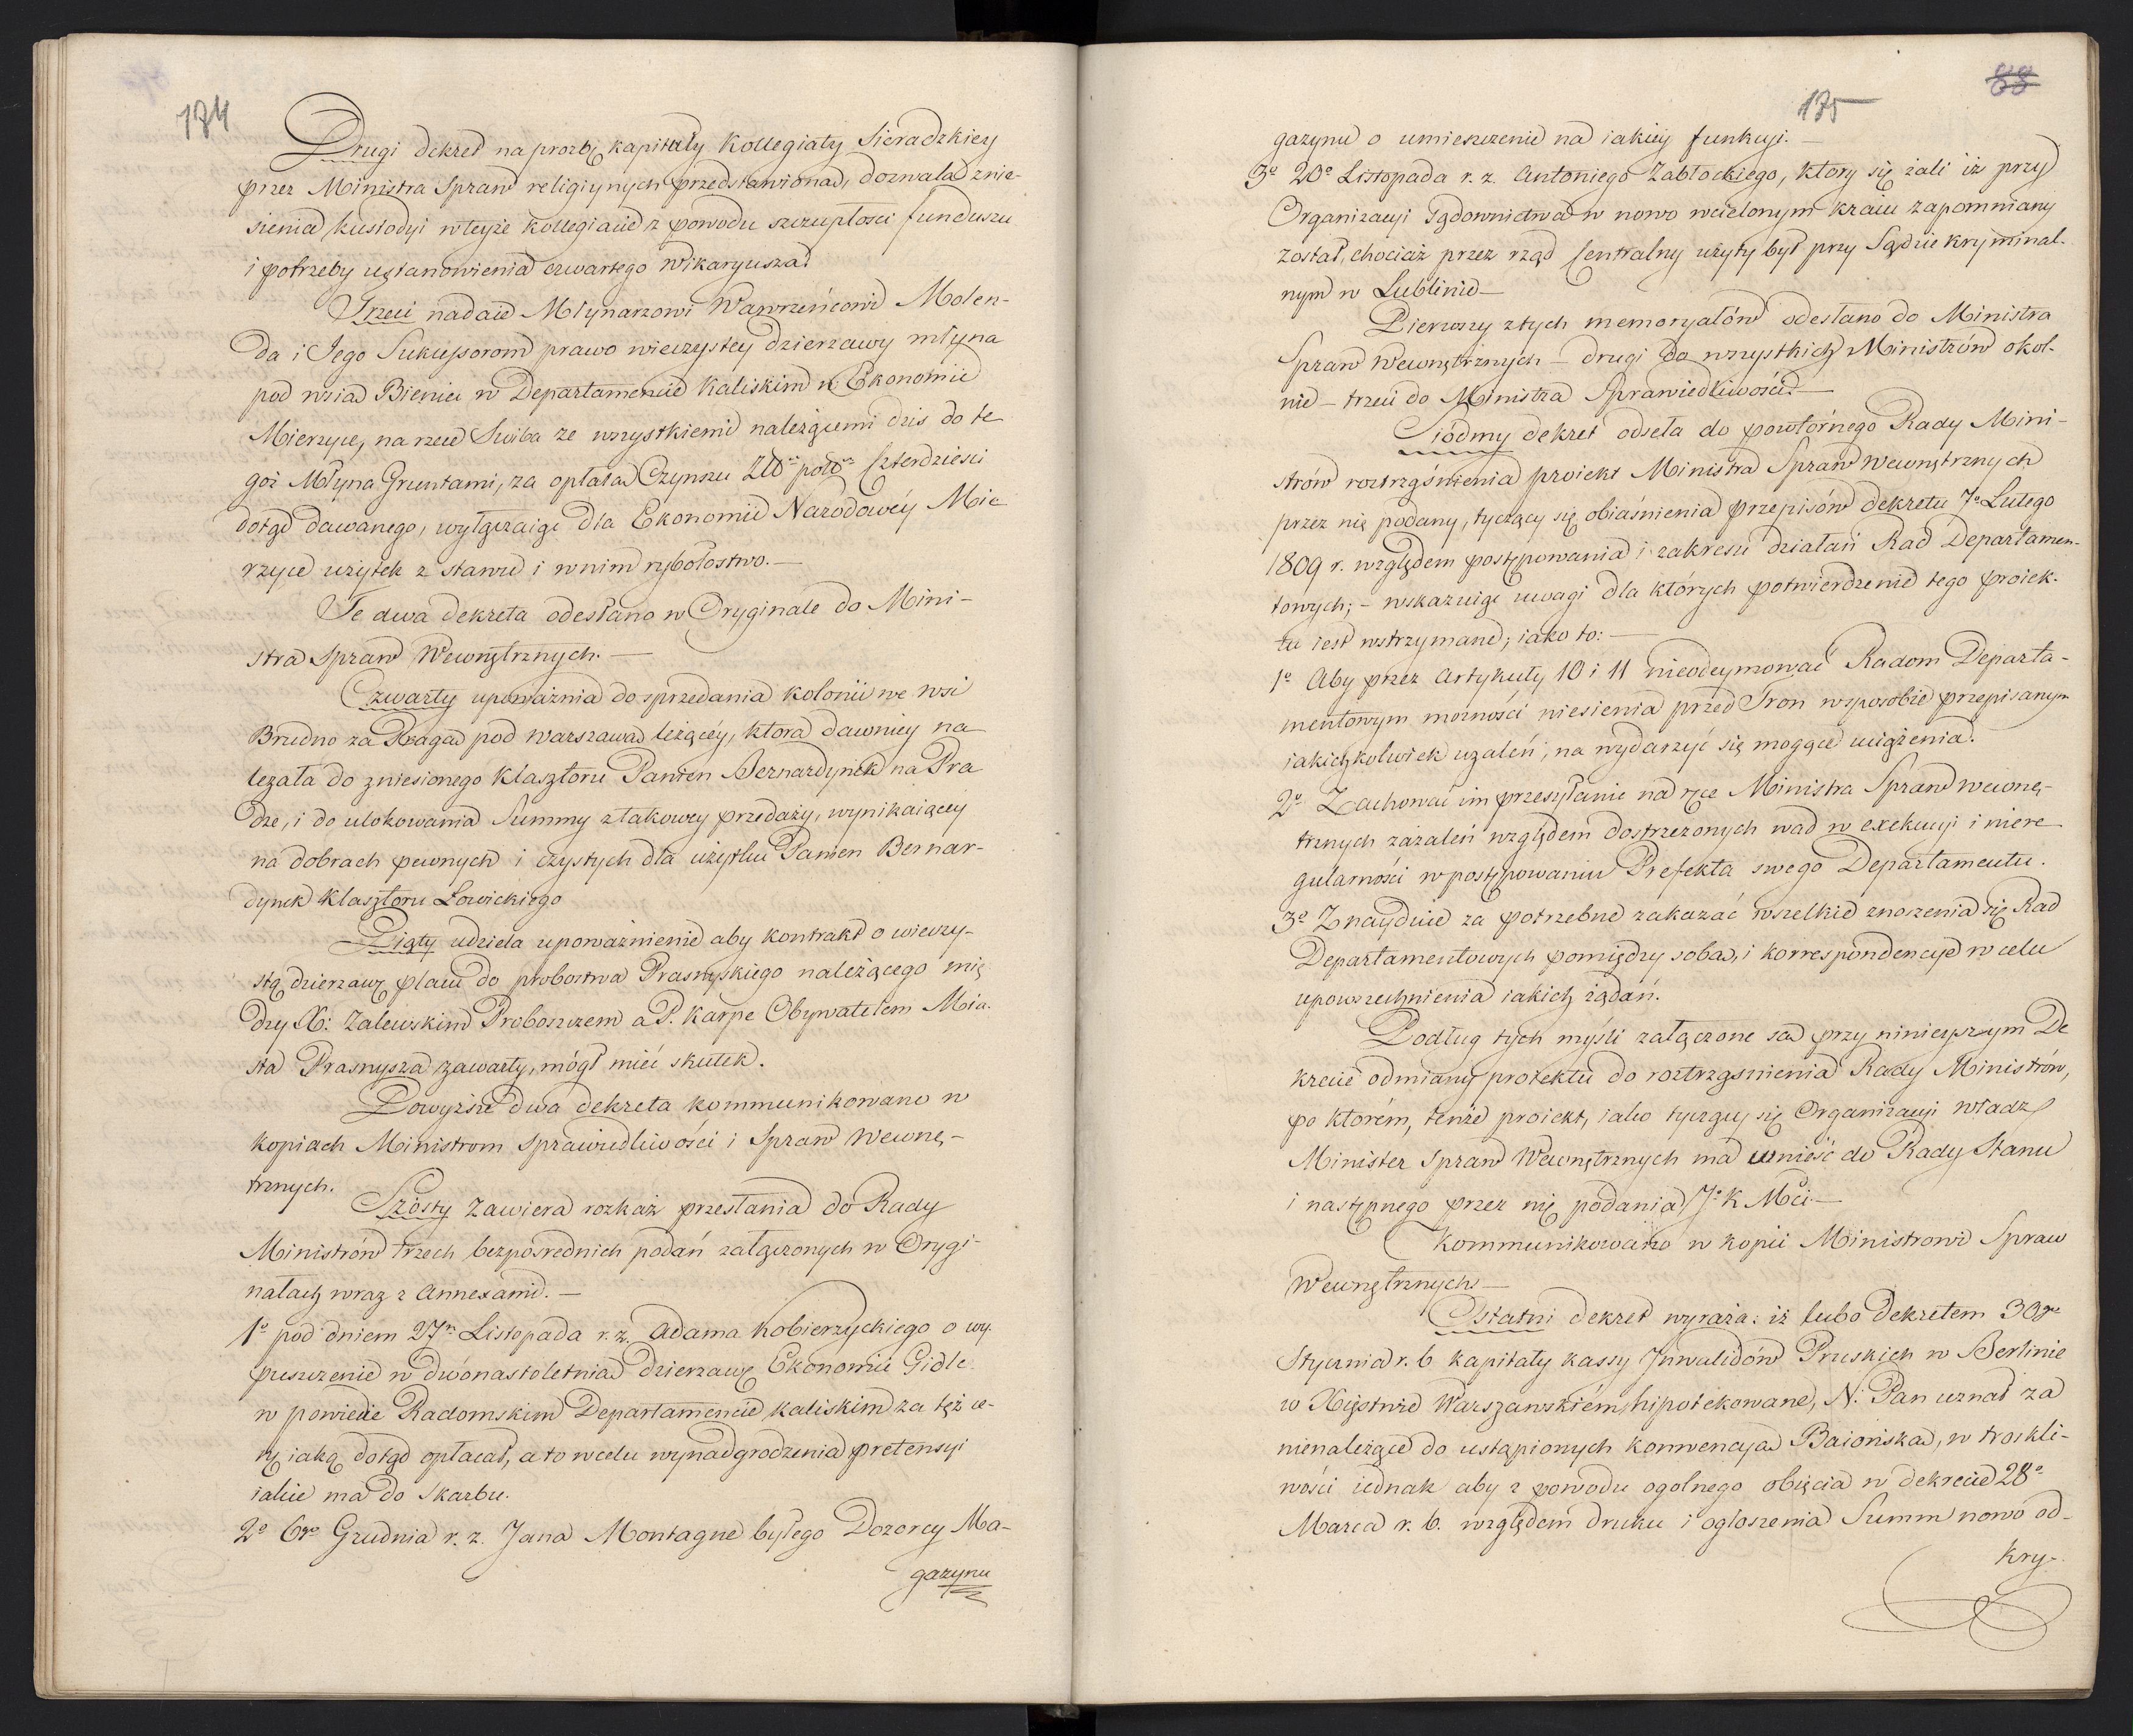 174
Drugi dekret na prozbę kapituły Kollegiaty Sieradzkiey
przez Ministra Spraw religiynych przedstawioną, dozwala znie-
sienia kustodyi w teyże kollegiacie z powodu szczupłości funduszu
i potrzeby ustanowienia czwartego Wikaryusza.
Trzeci nadaie Młynarzowi Wawrzeńcowi Molen-
da i Jego Sukcessorom prawo wieczystey dzierzawy młyna
pod wsią Bieniec w Departamencie Kaliskim w Ekonomii
Mierzyce, na rzece Swiba ze wszystkiemi należącemi dzis do te
goż Młyna Gruntami, za opłatą Czynszu Zło. pols. Czterdziesci
dotąd dawanego, wyłączaiąc dla Ekonomii Narodowéy Mie
rzyce użytek z stawu i w nim rybołostwo. —
Te dwa dekreta odesłano w Oryginale do Mini-
stra Spraw Wewnętrznych. —
Czwarty upoważnia do sprzedania kolonii we wsi
Brudno za Pragą pod Warszawą leżącéy, ktora dawniey na
leżała do zniesionego Klasztoru Panien Bernardynek na Pra
dze, i do ulokowania Summy z takowey przedaży, wynikaiącey
na dobrach pewnych i czystych dla użytku Panien Bernar-
dynek Klasztoru Łowickiego
Piąty udziela upoważnienie aby kontrakt o wieczy-
stą dzierzawę placu do probostwa Prasnyskiego należącego mię
dzy X: Zalewskim Proboszczem a P. Karpe Obywatelem Mia-
sta Prasnysza zawarty, mógł mieć skutek.
Powyższe dwa dekreta kommunikowano w
kopiach Ministrom Sprawiedliwości i Spraw Wewnę-
trznych.
Szósty zawiera rozkaz przesłania do Rady
Ministrów trzech bezpośrednich podań załączonych w Orygi-
nałach wraz z Annexami. —
1o pod dniem 27m Listopada r. z. Adama Kobierzyckiego o wy
puszczenie w dwónastoletnią dzierzawę Ekonomii Gidle
w powiecie Radomskim Departamencie Kaliskim za też ce-
nę iaką dotąd opłacał, a to w celu wynadgrodzenia pretensyi
iakie ma do Skarbu.
2o 6go Grudnia r. z. Jana Montagne byłego Dozorcy Ma-
gazynu
88
175
gazynu o umieszczenie na iakiey funkcyi. —
3o 20o Listopada r. z. Antoniego Zabłockiego, ktory się żali iż przy
Organizacyi Sądownictwa w nowo wcielonym kraiu zapomniany
został, chociaż przez rząd Centralny użyty był przy Sądzie kryminal-
nym w Lublinie —
Pierwszy z tych memoryałów odesłano do Ministra
Spraw Wewnętrznych — drugi do wszystkich Ministrów okol-
nie — trzeci do Ministra Sprawiedliwości. —
Siódmy dekret odseła do powtórnego Rady Mini-
strów roztrząśnienia proiekt Ministra Spraw Wewnętrznych
przez nię podany, tyczący się obiaśnienia przepisów dekretu 7o Lutego
1809 r. względem postępowania i zakresu działań Rad Departamen-
towych; — wskazuiąc uwagi dla których potwierdzenie tego proiek-
tu iest wstrzymane; iako to: —
1o Aby przez Artykuły 10 i 11 nieodeymować Radom Departa-
mentowym możności niesienia przed Tron w sposobie przepisanym
iakichkolwiek użaleń, na wydarzyć się mogące uciążenia.
2o Zachować im przesyłanie na ręce Ministra Spraw wewnę-
trznych zażaleń względem dostrzeżonych wad w exekucyi i niere
gularności w postępowaniu Prefekta swego Departamentu.
3o Znayduie za potrzebne zakazać wszelkie znoszenia się Rad
Departamentowych pomiędzy sobą, i korrespondencye w celu
upowszechnienia iakich żądań.
Podług tych myśli załączone są przy ninieyszym De
krecie odmiany proiektu do roztrząsnienia Rady Ministrów,
po ktorém, tenże proiekt, iako tyczący się Organizacyi władz
Minister Spraw Wewnętrznych ma wnieść do Rady Stanu
i następnego przez nię podania J: K Mci. —
Kommunikowano w kopii Ministrowi Spraw
Wewnętrznych —
Ostatni dekret wyraża: iż lubo Dekretem 30go
Stycznia r. b. kapitały kassy Inwalidów Pruskich w Berlinie
w Xięstwie Warszawskiém hipotekowane, N: Pan uznał za
nienależące do ustąpionych konwencyą Baiońską, w troskli-
wości iednak aby z powodu ogolnego obięcia w dekrecie 28o
Marca r. b. względem druku i ogłoszenia Summ nowo od-
kry-